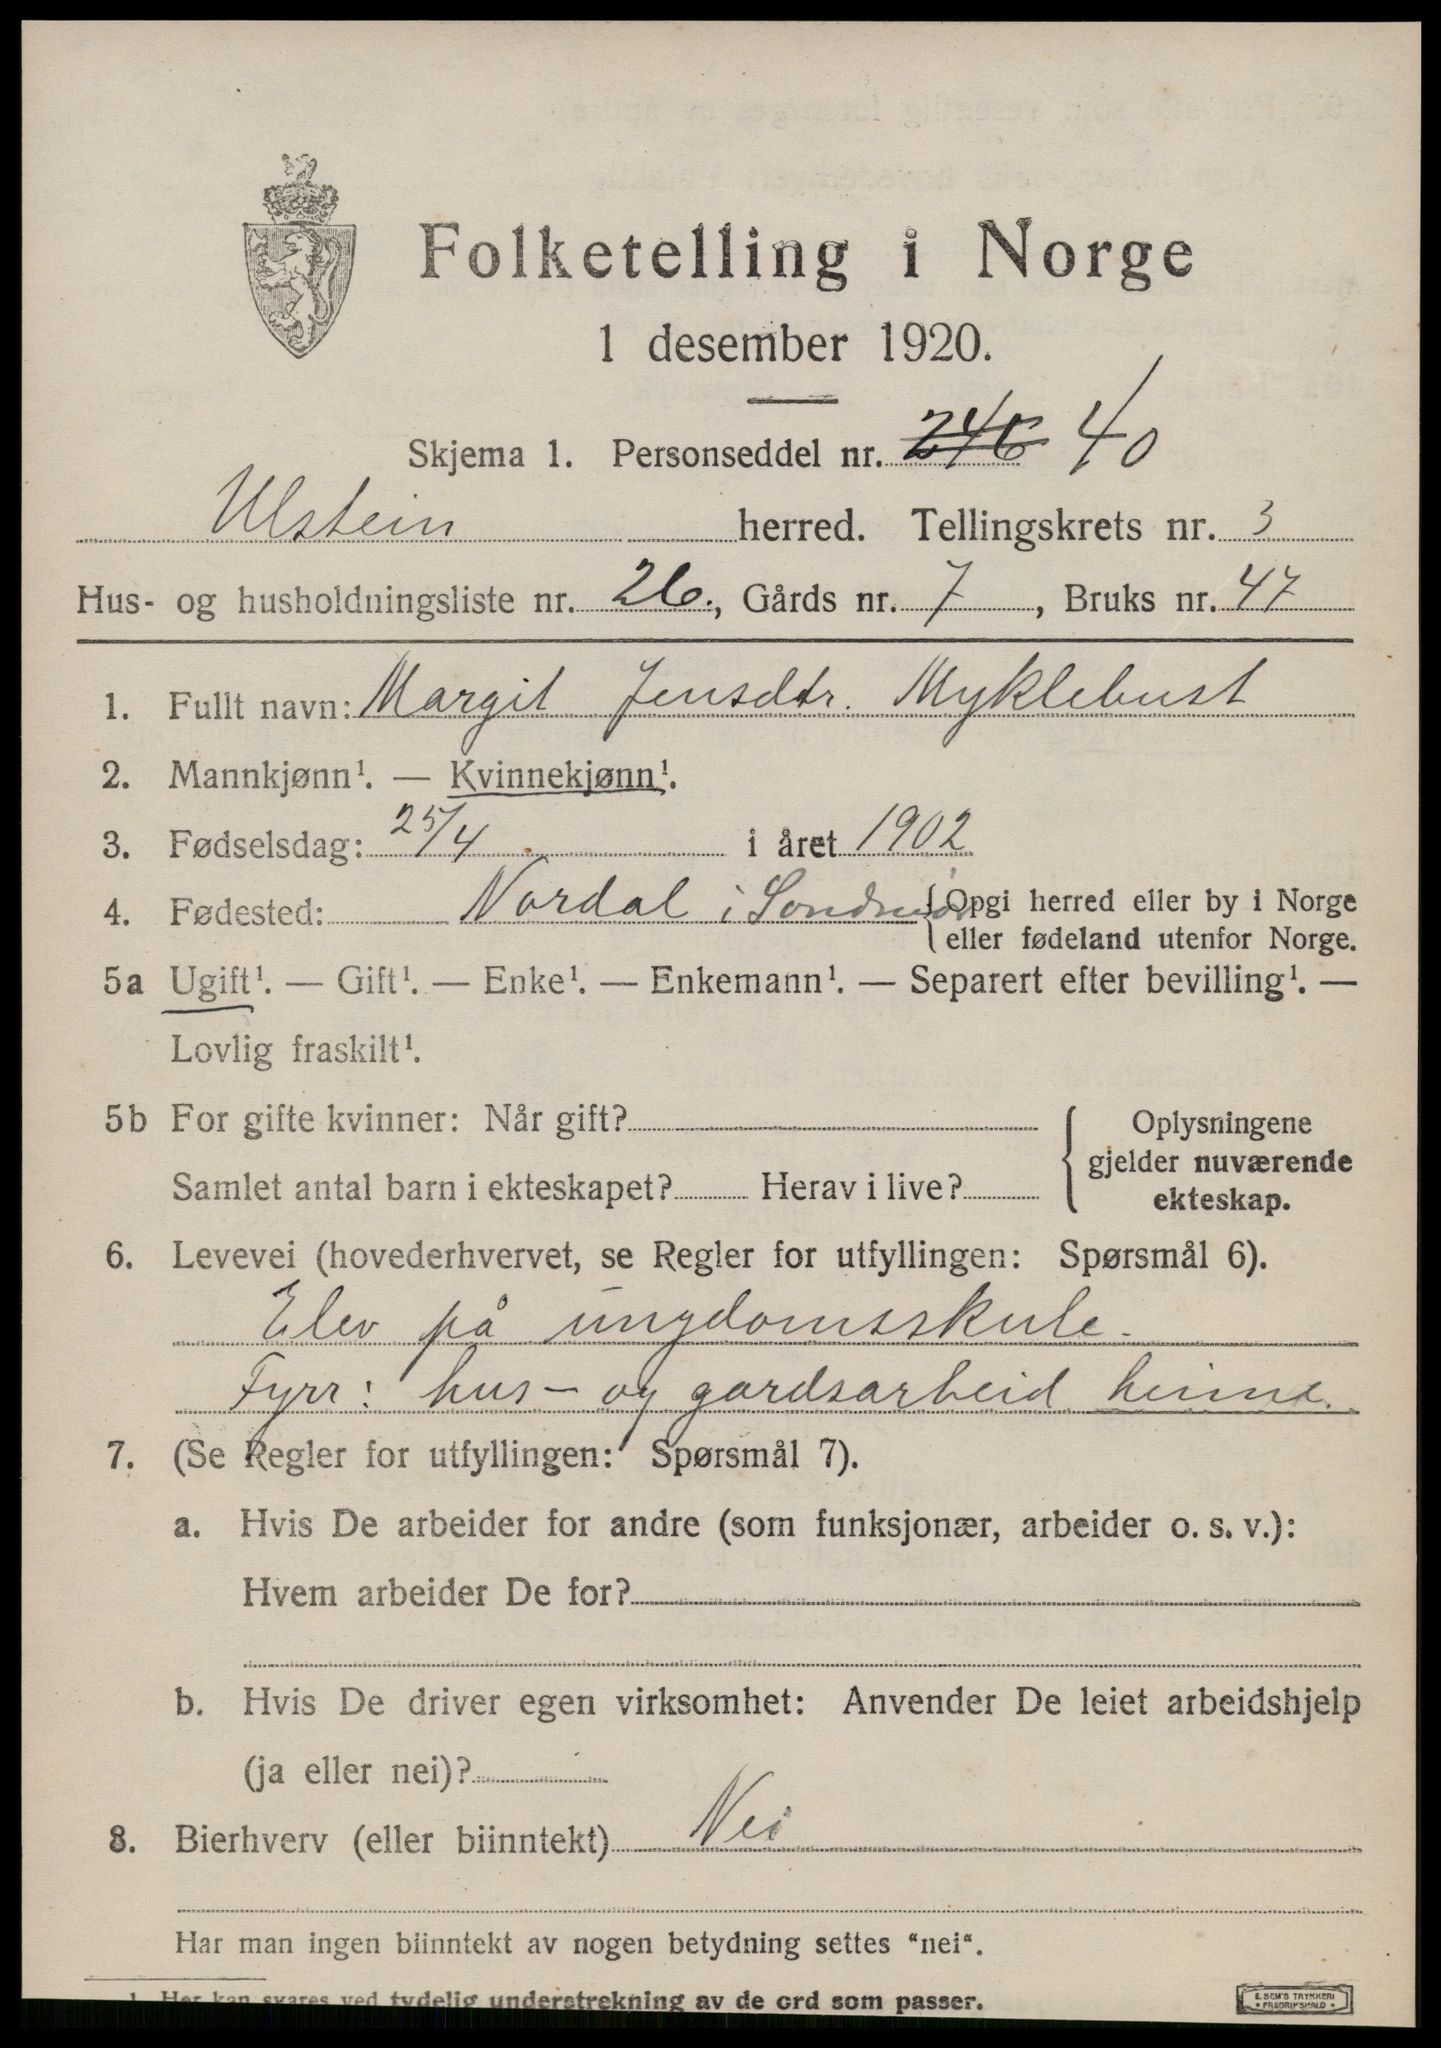 Folketelling i Norge
1 desember 1920.
Skjema 1. Personseddel nr. 246 40
Ulstein herred. Tellingskrets nr. 3
Hus- og husholdningsliste nr. 26., Gårds nr. 7, Bruks nr. 47
1. Fullt navn: Margit Jensdtr. Myklebust
2. Mannkjønn¹. — Kvinnekjønn¹.
3. Fødselsdag: 25/4 i året 1902
4. Fødested: Nordal i Søndmør {Opgi herred eller by i Norge
eller fødeland utenfor Norge.
5a Ugift¹. — Gift¹. — Enke¹. — Enkemann¹. — Separert efter bevilling¹. —
Lovlig fraskilt¹.
5b For gifte kvinner: Når gift?
Samlet antal barn i ekteskapet? Herav i live?
Oplysningene
gjelder nuværende
ekteskap.
6. Levevei (hovederhvervet, se Regler for utfyllingen: Spørsmål 6).
Elev på ungdomsskule.
Fyrr: hus- og gardsarbeid heime.
7. (Se Regler for utfyllingen: Spørsmål 7).
a. Hvis De arbeider for andre (som funksjonær, arbeider o. s. v.):
Hvem arbeider De for?
b. Hvis De driver egen virksomhet: Anvender De leiet arbeidshjelp
(ja eller nei)?
8. Bierhverv (eller biinntekt) Nei
Har man ingen biinntekt av nogen betydning settes "nei".
1. Her kan svares ved tydelig understrekning av de ord som passer.
E. SEM'S TRYKKERI
* FREDRIKSHALD *